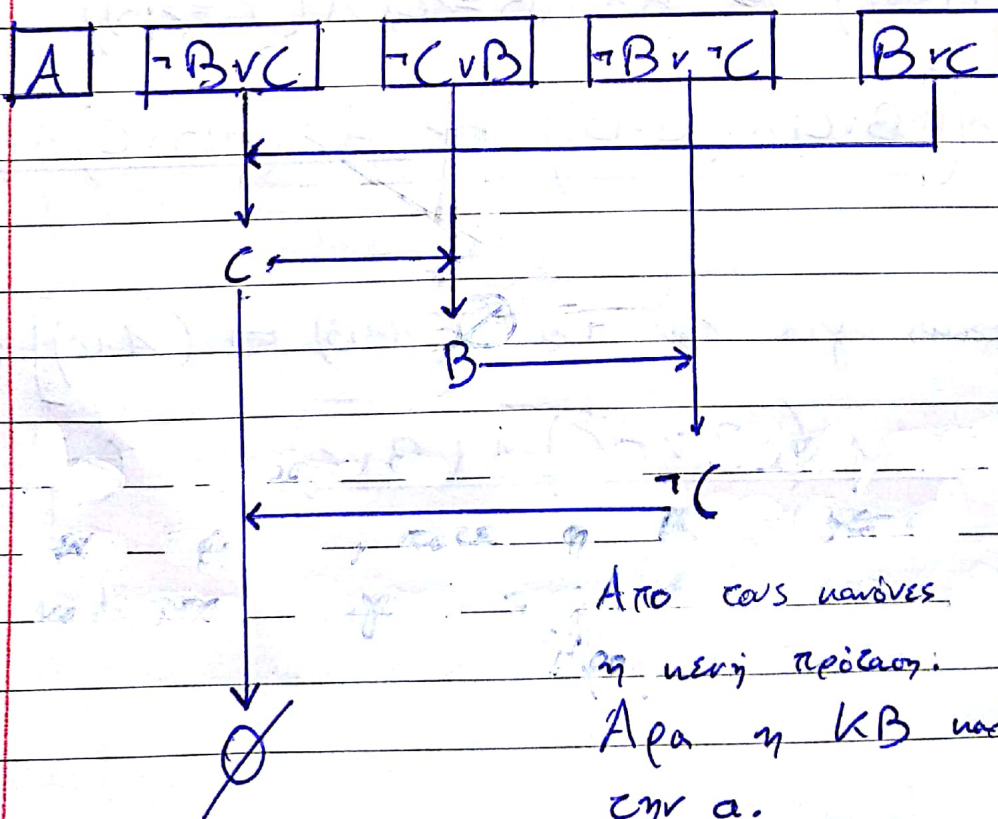 A ¬B∨C ¬C∨B ¬B∨¬C B∨C
C
B
¬C
Απο τους κανόνες
η κενή πρόταση.
Άρα η KB
∅
την α.